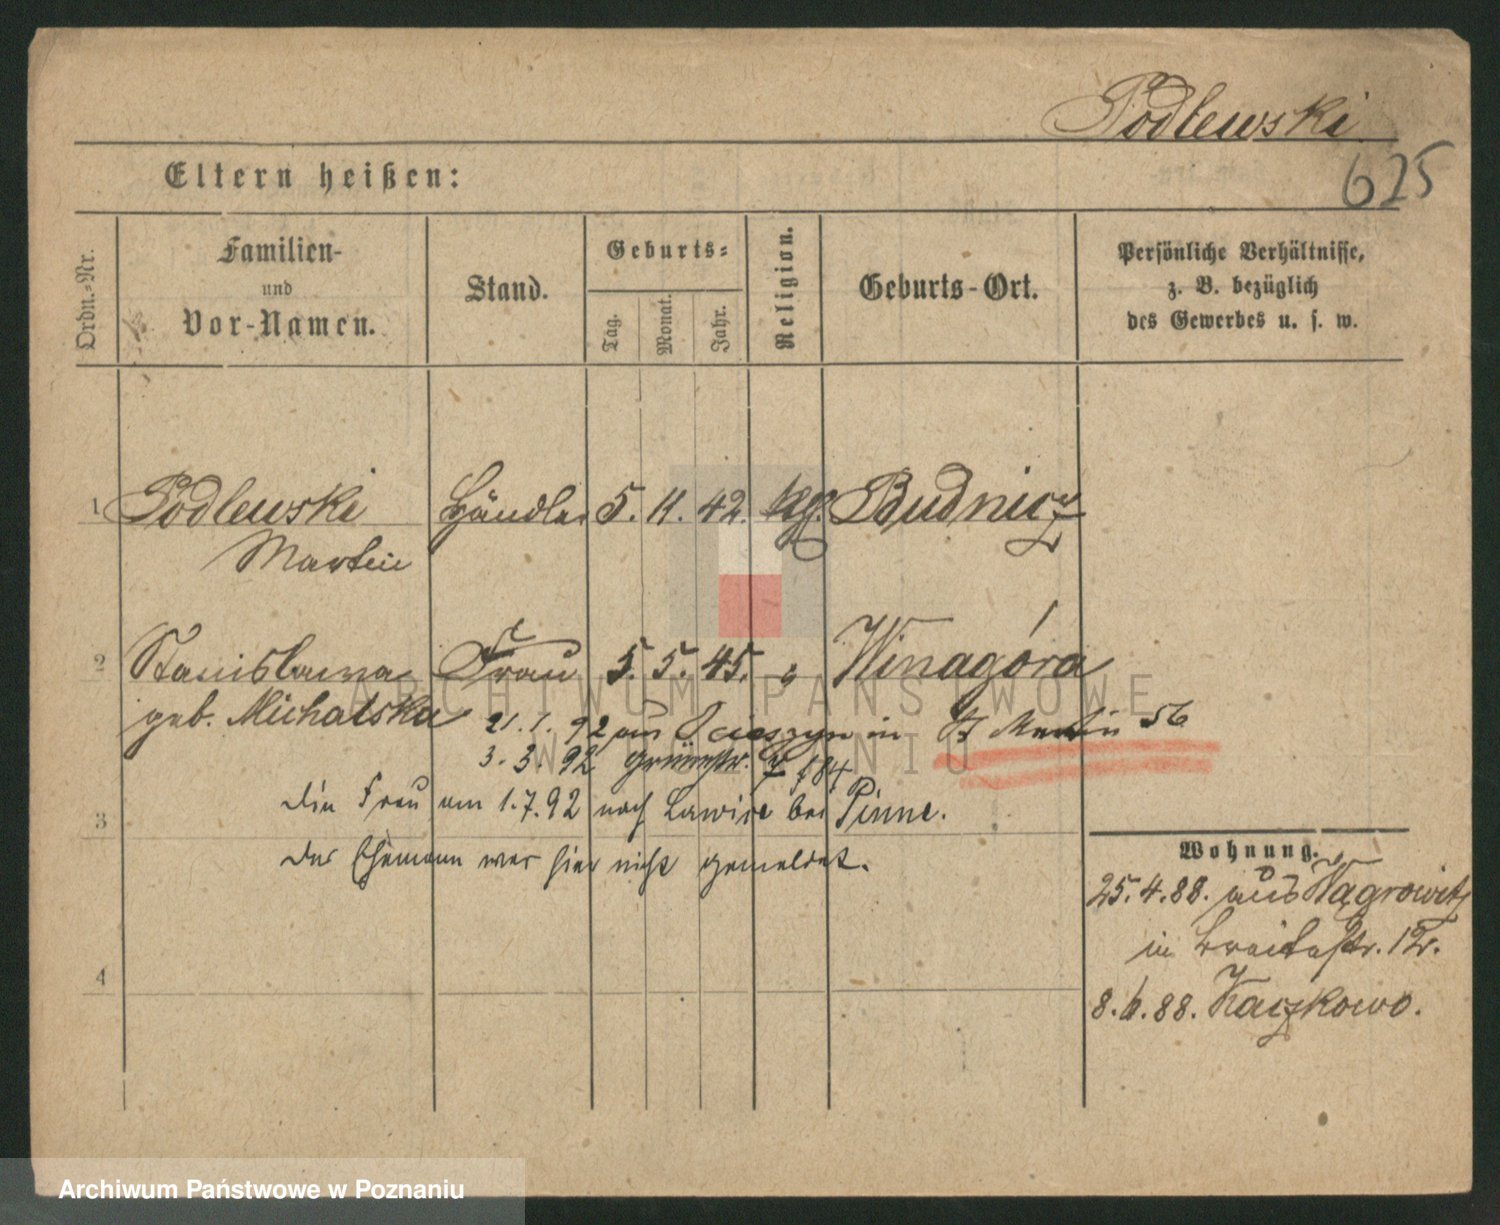 Podlewski
625
Eltern heißen:
Ordn.-Nr.
Familien-
und
Vor-Namen.
Stand.
Geburts-
Tag.
Monat.
Jahr.
Religion.
Geburts-Ort.
Persönliche Verhältnisse,
z. B. bezüglich
des Gewerbes u. s. w.
1 Podlewski Händler 5. 11. 42. ktg. Budnicz
Martin
2 Stanislawa Frau 5. 5. 45. " Winagóra
geb. Michalska
21. 1. 92 aus in St Martin 56
3. 3. 92 Grünestr. 7
Die Frau am 1.7.92 nach bei Pinne.
3
Der Ehemann war hier nicht gemeldet.
4
Wohnung.
25. 4. 88. aus Wągrowitz
in Breitestr. 12.
8. 6. 88. Kaczkowo.
ARCHIWUM PAŃSTWOWE
W POZNANIU
Archiwum Państwowe w Poznaniu